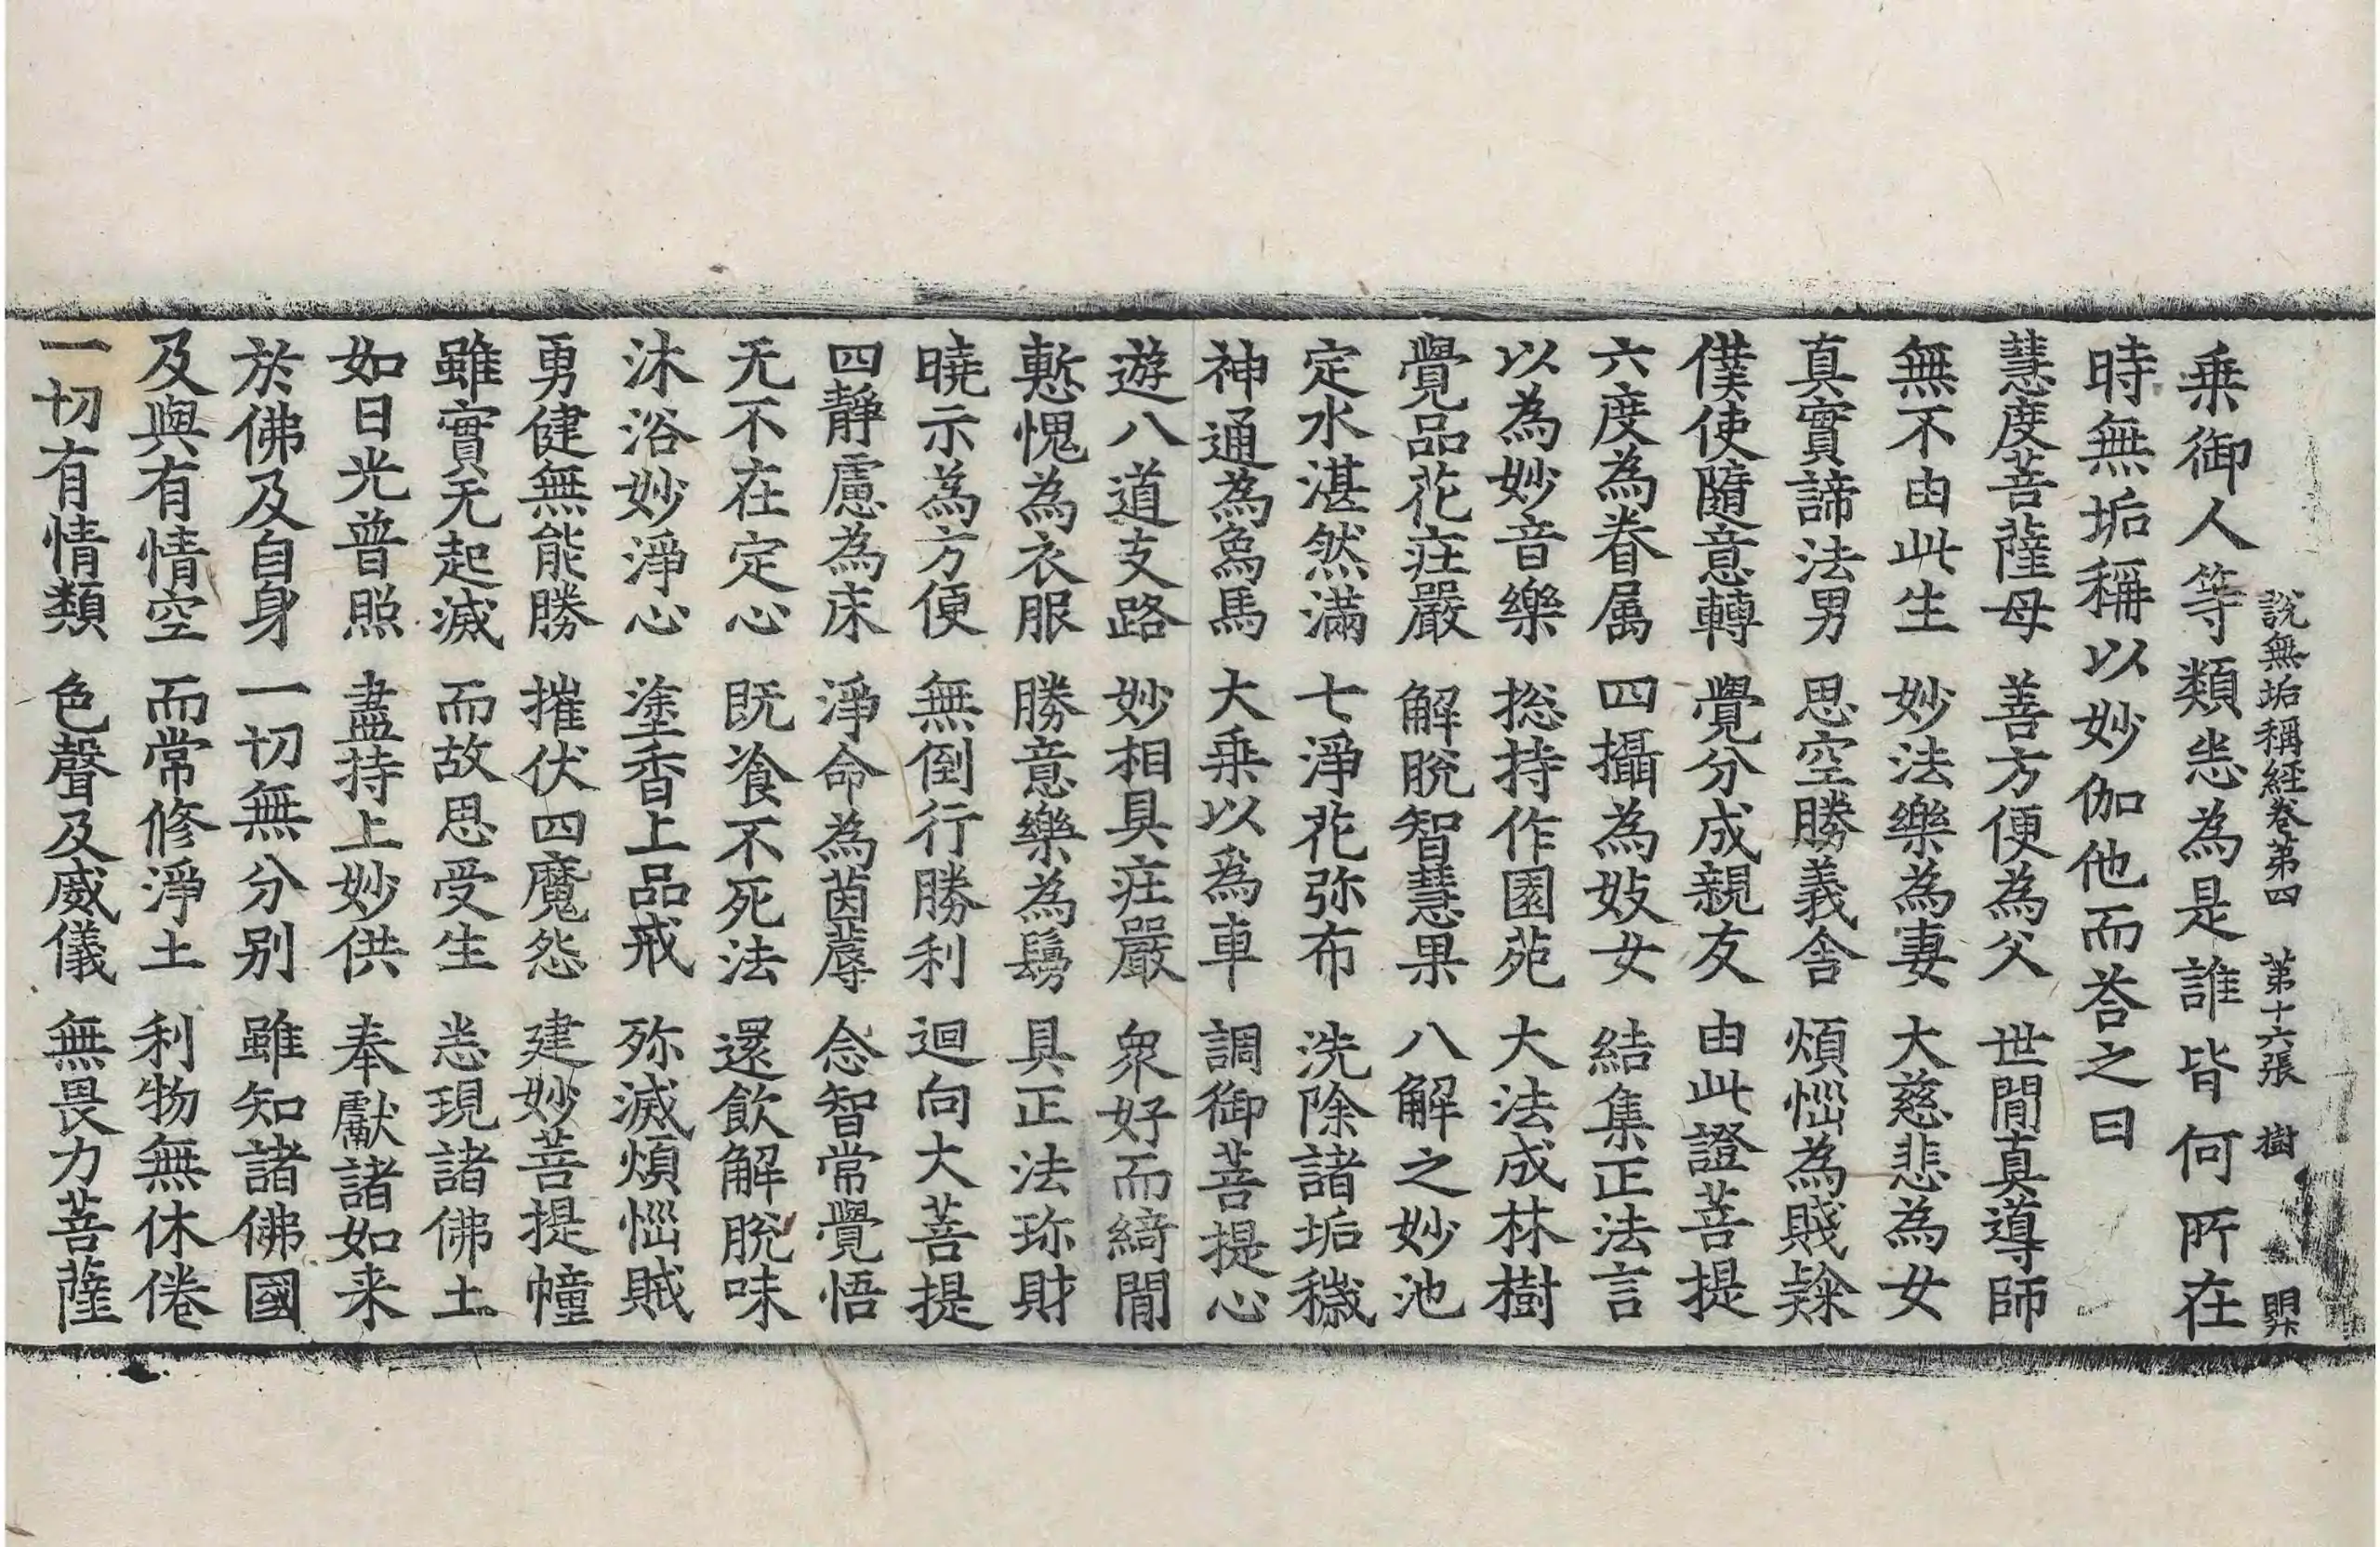 說無垢稱經卷第四 第十六張 樹
乘御人等類悉為是誰皆何所在
時無垢稱以妙伽他而荅之曰
慧度菩薩母 善方便為父 世間真導師
無不由此生 妙法樂為妻 大慈悲為女
真實諦法男 思空勝義舍 煩惱為賤隸
僕使隨意轉 覺分成親友 由此證菩提
六度為眷属 四攝為妓女 結集正法言
以為妙音樂 捴持作園苑 大法成林樹
覺品花莊嚴 解脫智慧果 八解之妙池
定水湛然滿 七淨花弥布 洗除諸垢穢
神通為象馬 大乘以為車 調御菩提心
遊八道支路 妙相具莊嚴 衆好而綺間
慙愧為衣服 勝意樂為鬘 具正法珎財
曉示為方便 無倒行勝利 迴向大菩提
四靜慮為床 淨命為茵蓐 念智常覺悟
无不在定心 既飡不死法 還飲解脫味
沐浴妙淨心 塗香上品戒 殄滅煩惱賊
勇健無能勝 摧伏四魔怨 建妙菩提幢
雖實无起滅 而故思受生 悉現諸佛土
如日光普照 盡持上妙供 奉獻諸如来
於佛及自身 一切無分别 雖知諸佛國
及與有情空 而常修淨土 利物無休倦
一切有情類 色聲及威儀 無畏力菩薩